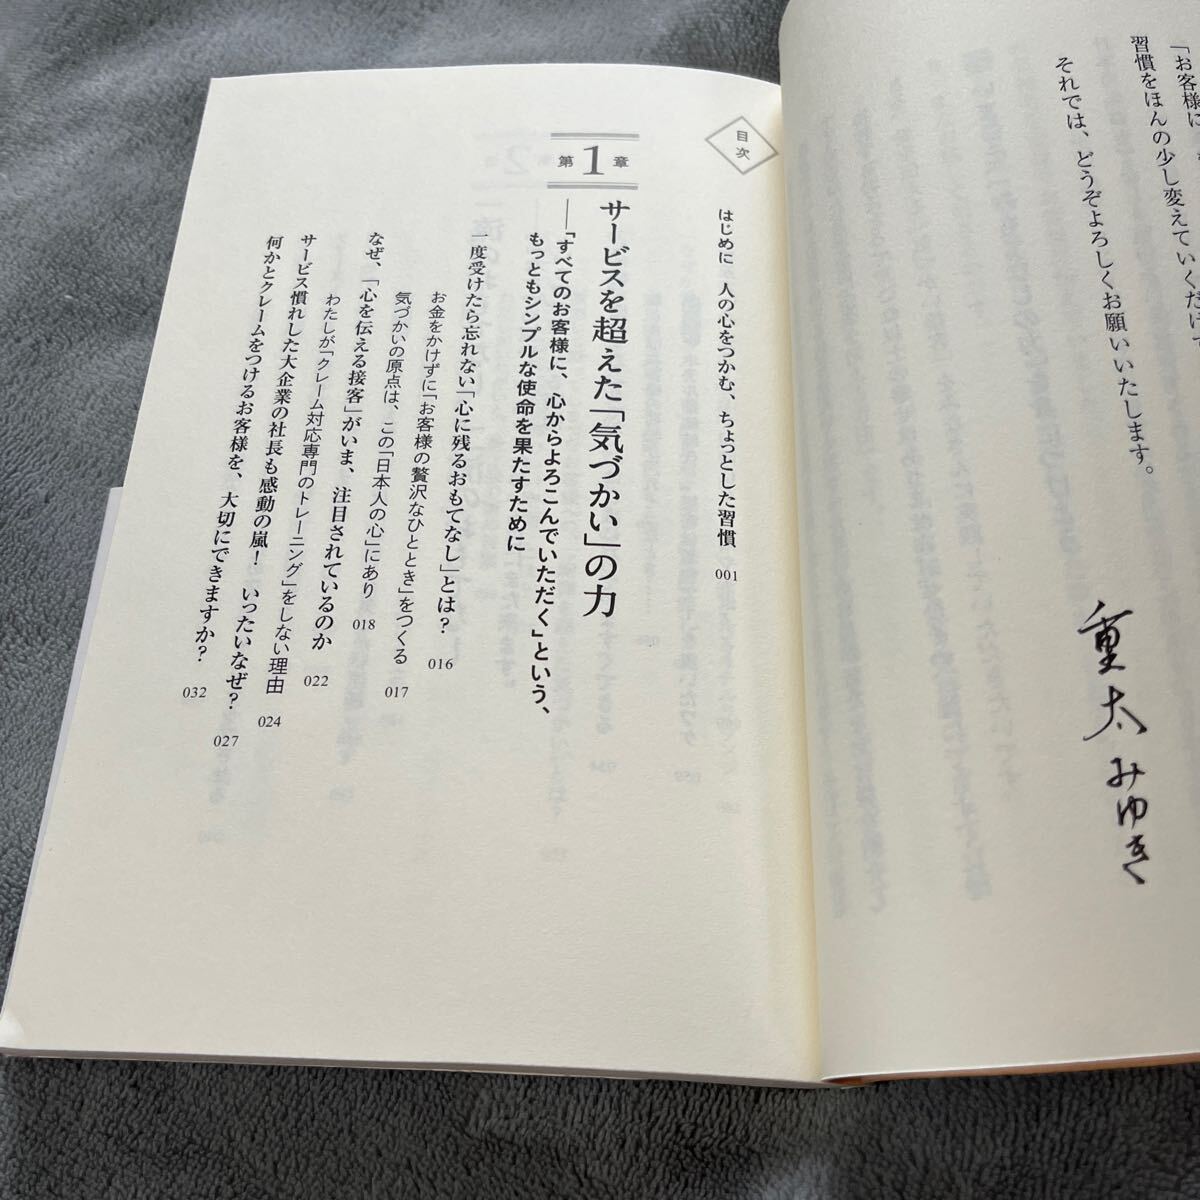 「お客様に
習慣をほんの少し変えていくだけで
それでは、どうぞよろしくお願いいたします。
重太みゆき
目次
はじめに 人の心をつかむ、ちょっとした習慣 001
第1章 サービスを超えた「気づかい」の力
――「すべてのお客様に、心からよろこんでいただく」という、
もっともシンプルな使命を果たすために
一度受けたら忘れない「心に残るおもてなし」とは? 016
お金をかけずに「お客様の贅沢なひととき」をつくる 017
気づかいの原点は、この「日本人の心」にあり 018
なぜ、「心を伝える接客」がいま、注目されているのか 022
わたしが「クレーム対応専門のトレーニング」をしない理由 024
サービス慣れした大企業の社長も感動の嵐! いったいなぜ? 027
何かとクレームをつけるお客様を、大切にできますか? 032